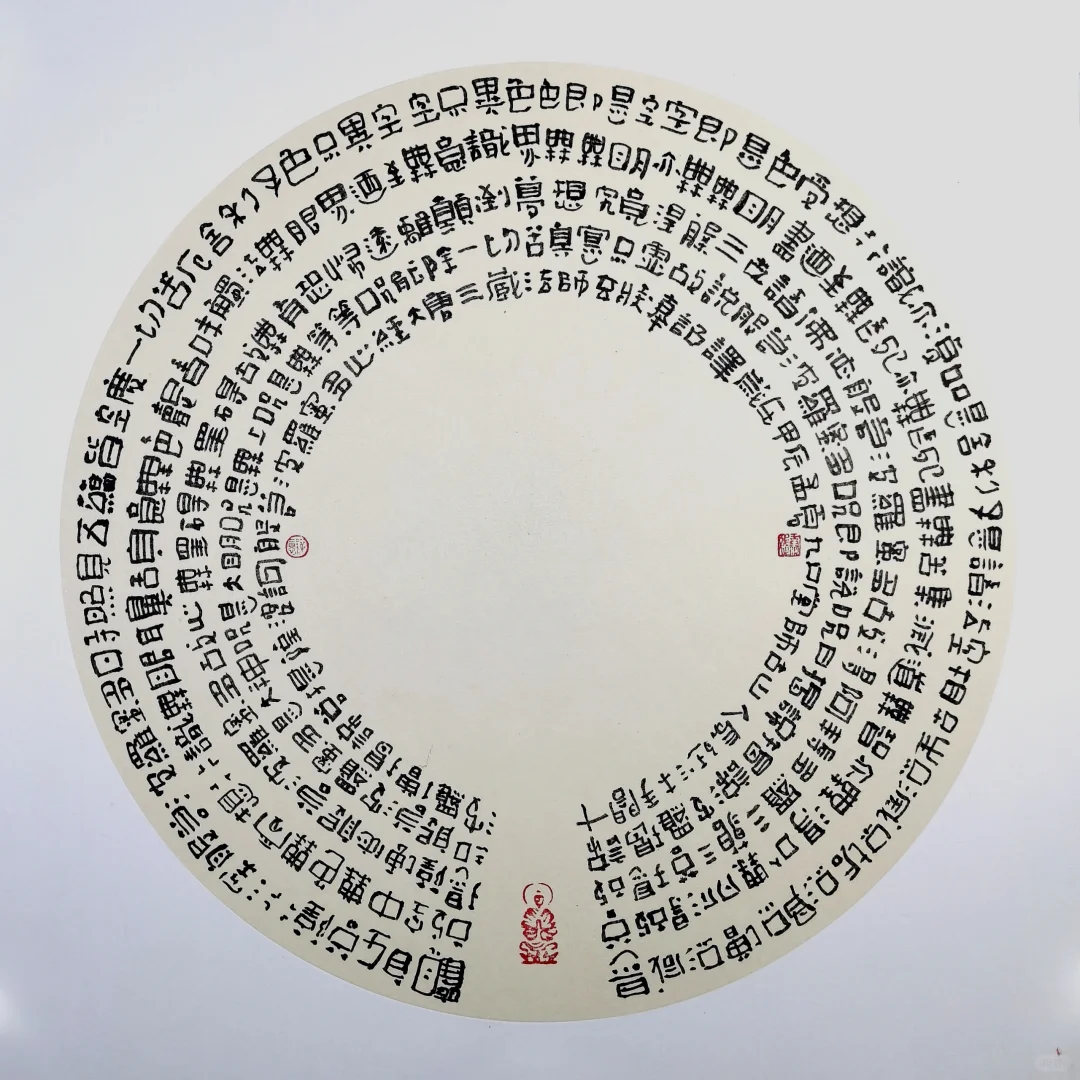 觀自在菩薩行深般若波羅蜜多時照見五蘊皆空度一切苦厄舍利子色不異空空不異色色即是空空即是色受想行識亦復如是舍利子是諸法空相不生不滅不垢不淨不增不減是
故空中無色無受想行識無眼耳鼻舌身意無色聲香味觸法無眼界乃至無意識界無無明亦無無明盡乃至無老死亦無老死盡無苦集滅道無智亦無得以無所得故菩
提薩埵依般若波羅蜜多故心無罣礙無罣礙故無有恐怖遠離顛倒夢想究竟涅槃三世諸佛依般若波羅蜜多故得阿耨多羅三藐三菩提故
知般若波羅蜜多是大神咒是大明咒是無上咒是無等等咒能除一切苦真實不虛故說般若波羅蜜多咒即說咒曰揭諦揭諦波羅揭諦
波羅僧揭諦菩提薩婆訶般若波羅蜜多心經大唐三藏法師玄奘奉詔譯歲在甲辰孟夏師古山人